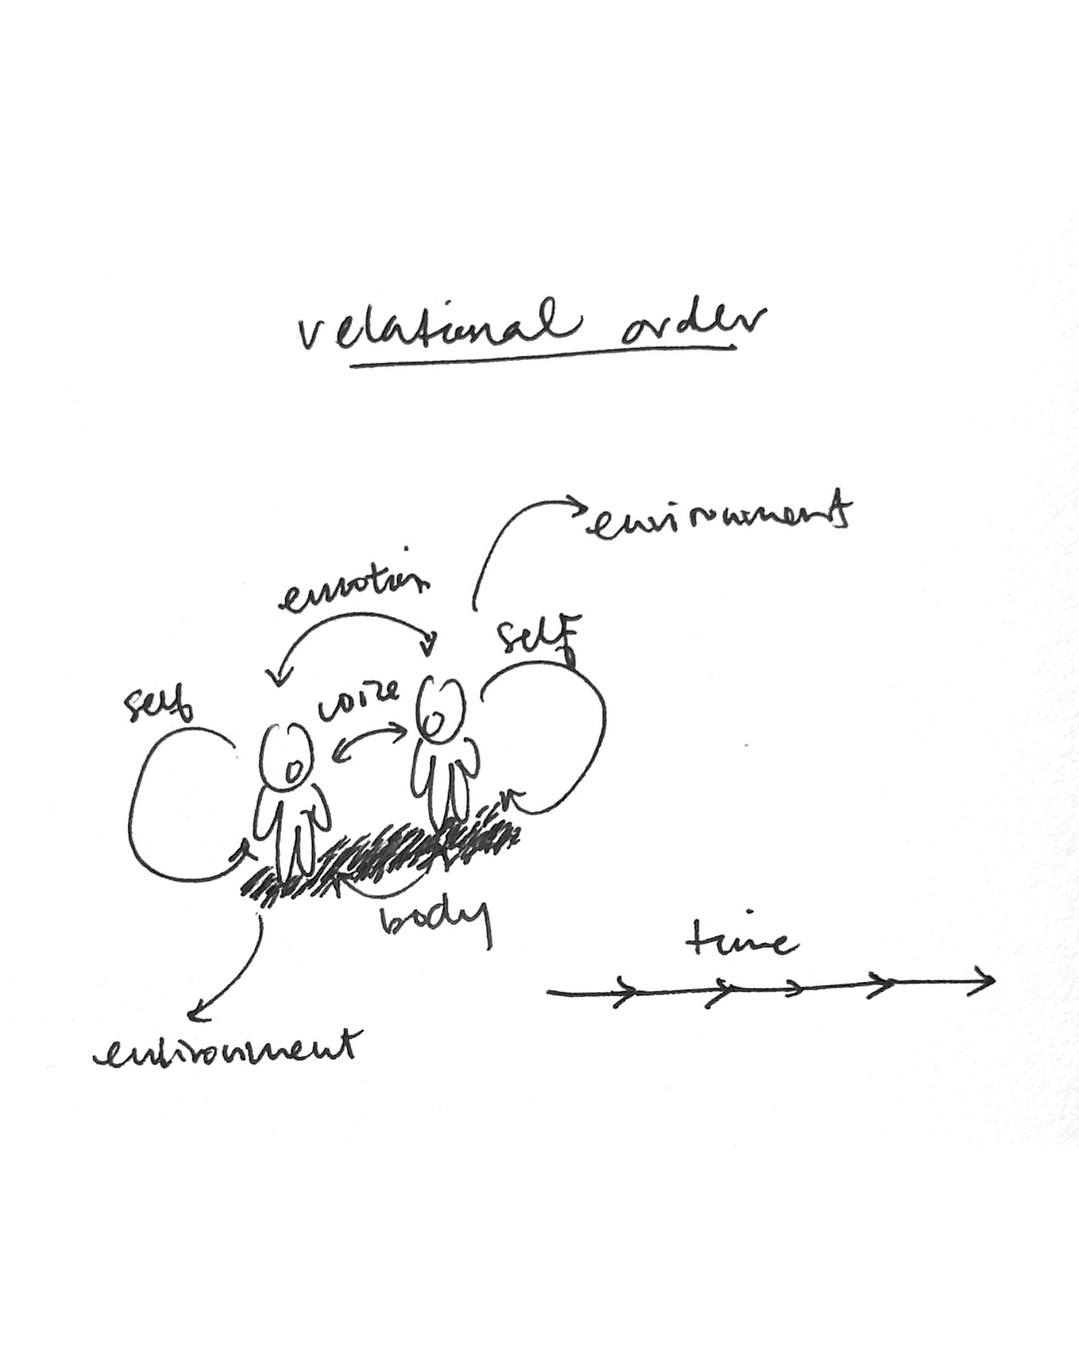 relational order
environment
emotion
self
self
voize
body
time
environment